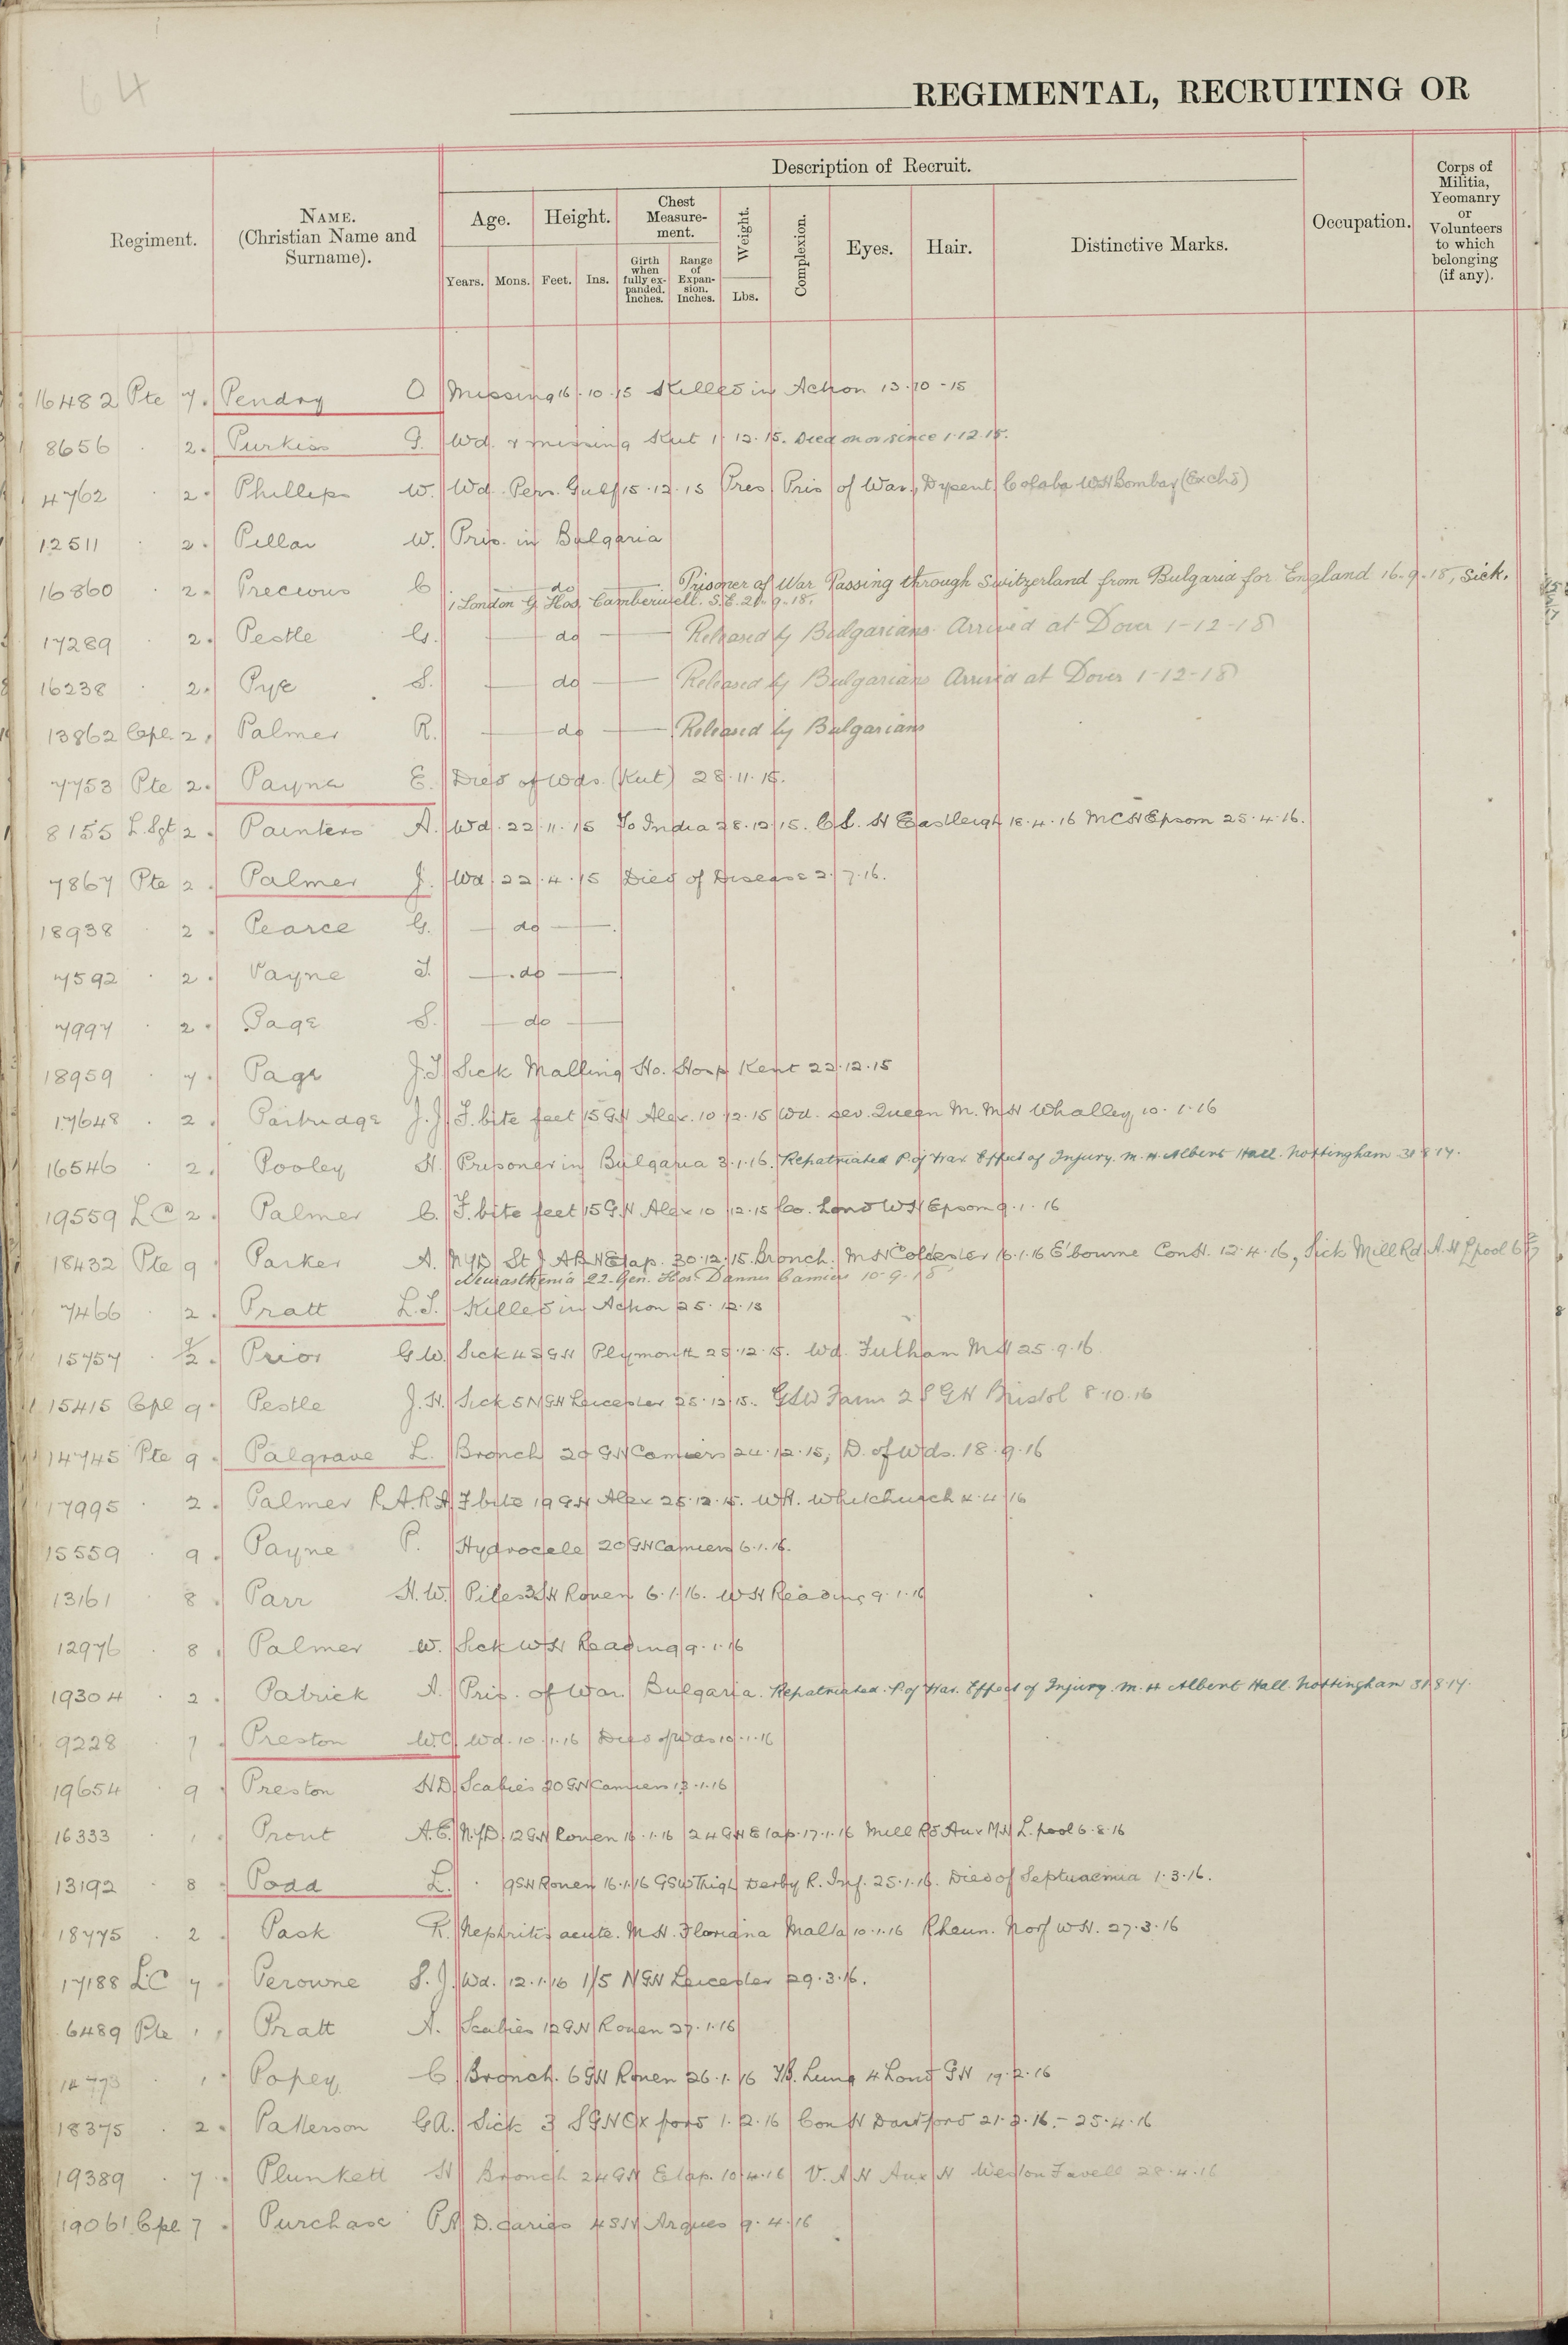 64
REGIMENTAL, RECRUITING OR
Description of Recruit.
Regiment.
NAME.
(Christian Name and
Surname).
Age.
Height.
Chest
Measure-
ment.
Weight.
Complexion.
Eyes.
Hair.
Distinctive Marks.
Occupation.
Corps of
Militia,
Yeomanry
or
Volunteers
to which
belonging
(if any).
Years.
Mons.
Feet.
Ins.
Girth
when
fully ex-
panded.
Inches.
Range
of
Expan-
sion.
Inches.
Lbs.
16482 Pte 7. Pendry O Missing 16.10.15 Killed in Action 13.10-15
8656 . 2. Purkiss G. Wd. & missing Kut 1.12.15. Died on or since 1.12.15.
4762 . 2. Phillips W. Wd. Pers. Gulf 15.12.15 Pres Pris of War, Dysent. Colaba WH Bombay (Exchd)
12511 . 2. Pillar W. Pris. in Bulgaria
16860 . 2. Precious C — do — Prisoner of War Passing through Switzerland from Bulgaria for England 16-9-18, Sick.
1 London G. Hos. Camberwell. S.E. 21-9-18.
17289 2. Pestle G. — do — Released by Bulgarians Arrived at Dover 1-12-18
16238 . 2. Pye S. — do — Released by Bulgarians Arrived at Dover 1-12-18
13862 Cpl. 2. Palmer R. — do — Released by Bulgarians
7753 Pte 2. Payne E. Died of Wds. (Kut) 28.11.15.
8155 L.Sgt 2. Painter A. Wd. 22.11.15 To India 28.12.15. C.L.H Eastleigh 18.4.16 MCH Epsom 25.4.16.
7867 Pte 2. Palmer J. Wd. 22.4.15 Died of Disease 2.7.16.
18938 . 2. Pearce G. — do —
7592 . 2. Payne J. — do —
7997 . 2. Page S. — do —
18959 . 7. Page J.J Sick Malling Ho. Hosp Kent 22.12.15
17648 . 2. Partridge J.J. F. bite feet 15 G.H Alex. 10.12.15 Wd. sev. Queen M. MH Whalley 10.1.16
16546 . 2. Pooley H. Prisoner in Bulgaria 3.1.16. Repatriated P. of War Effect of Injury. M.H. Albert Hall. Nottingham 31 8 17.
19559 LC 2. Palmer C. F. bite feet 15 G.H Alex 10.12.15 Co. Lond WH Epsom 9.1.16
18432 Pte 9. Parker A. NYD St J. ABH Etap. 30.12.15. Bronch. MH Colchester 6.1.16 E'bourne Con H. 12.4.16, Sick Mill Rd A.H L'pool
Neurasthenia 22. Gen. Hos. Dannes Camiers 10-9-18
7466 . 2. Pratt L.J. Killed in Action 25.12.15
15757 . 9/2. Prior G W. Sick 4 S G H Plymouth 28.12.15. Wd. Fulham MH 25.9.16
15415 Cpl 9. Pestle J.H. Sick 5 NGH Leicester 25.12.15. GSW Farm 2 S GH Bristol 8.10.16
14745 Pte 9. Palgrave L. Bronch 20 GH Camiers 24.12.15, D. of Wds. 18.9.16
17995 . 2. Palmer R.A.R.A F bite 19 GH Alex 25.12.15. WH. Whitchurch 4.4.16
15559 . 9. Payne P. Hydrocele 20 GH Camiers 6.1.16.
13161 . 8. Parr H.W. Piles 3 SH Rouen 6.1.16. WH Reading 9.1.16
12976 . 8. Palmer W. Sick WH Reading 9.1.16
19304 . 2. Patrick A. Pris. of War Bulgaria. Repatriated. P. of War. Effect of Injury. M.H. Albert Hall. Nottingham 31.8.17.
9228 7 Preston W.C Wd. 10.1.16 Died of Wds 10.1.16
19654 . 9 Preston H D. Scabies 20 GH Camiers 13.1.16
16333 . 1 Prout A.E. N.Y.D. 12 GH Rouen 16.1.16 24 GH Etap. 17.1.16 Mill Rd Aux MH L.pool 6.8.16
13192 . 8 Podd L. . 9 SH Rouen 16.1.16 GSW Thigh Derby R. Inf. 25.1.16. Died of Septuaemia 1.3.16.
18775 . 2 Pask R. Nephritis acute. M.H. Floriana Malta 10.1.16 Rheum. Norf WH. 27.3.16
17188 LC 7. Perowne S.J. Wd. 12.1.16 1/5 NGH Leicester 29.3.16.
6489 Pte 1 Pratt A. Scabies 12 GH Rouen 27.1.16
1 Popey C Bronch. 6 GH Rouen 26.1.16 TB. Lung 4 Lond GH 19.2.16
18375 . 2. Patterson G A. Sick 3 SGH Oxford 1.2.16 Con H Dartford 21.3.16. - 25.4.16
19389 . 7. Plunkett H Bronch 24 GH Etap. 10.4.16 V.A.H Aux H Weston Favell 28.4.16
19061 Cpl. 7. Purchase P.A D. caries 4 SH Arques 9.4.16